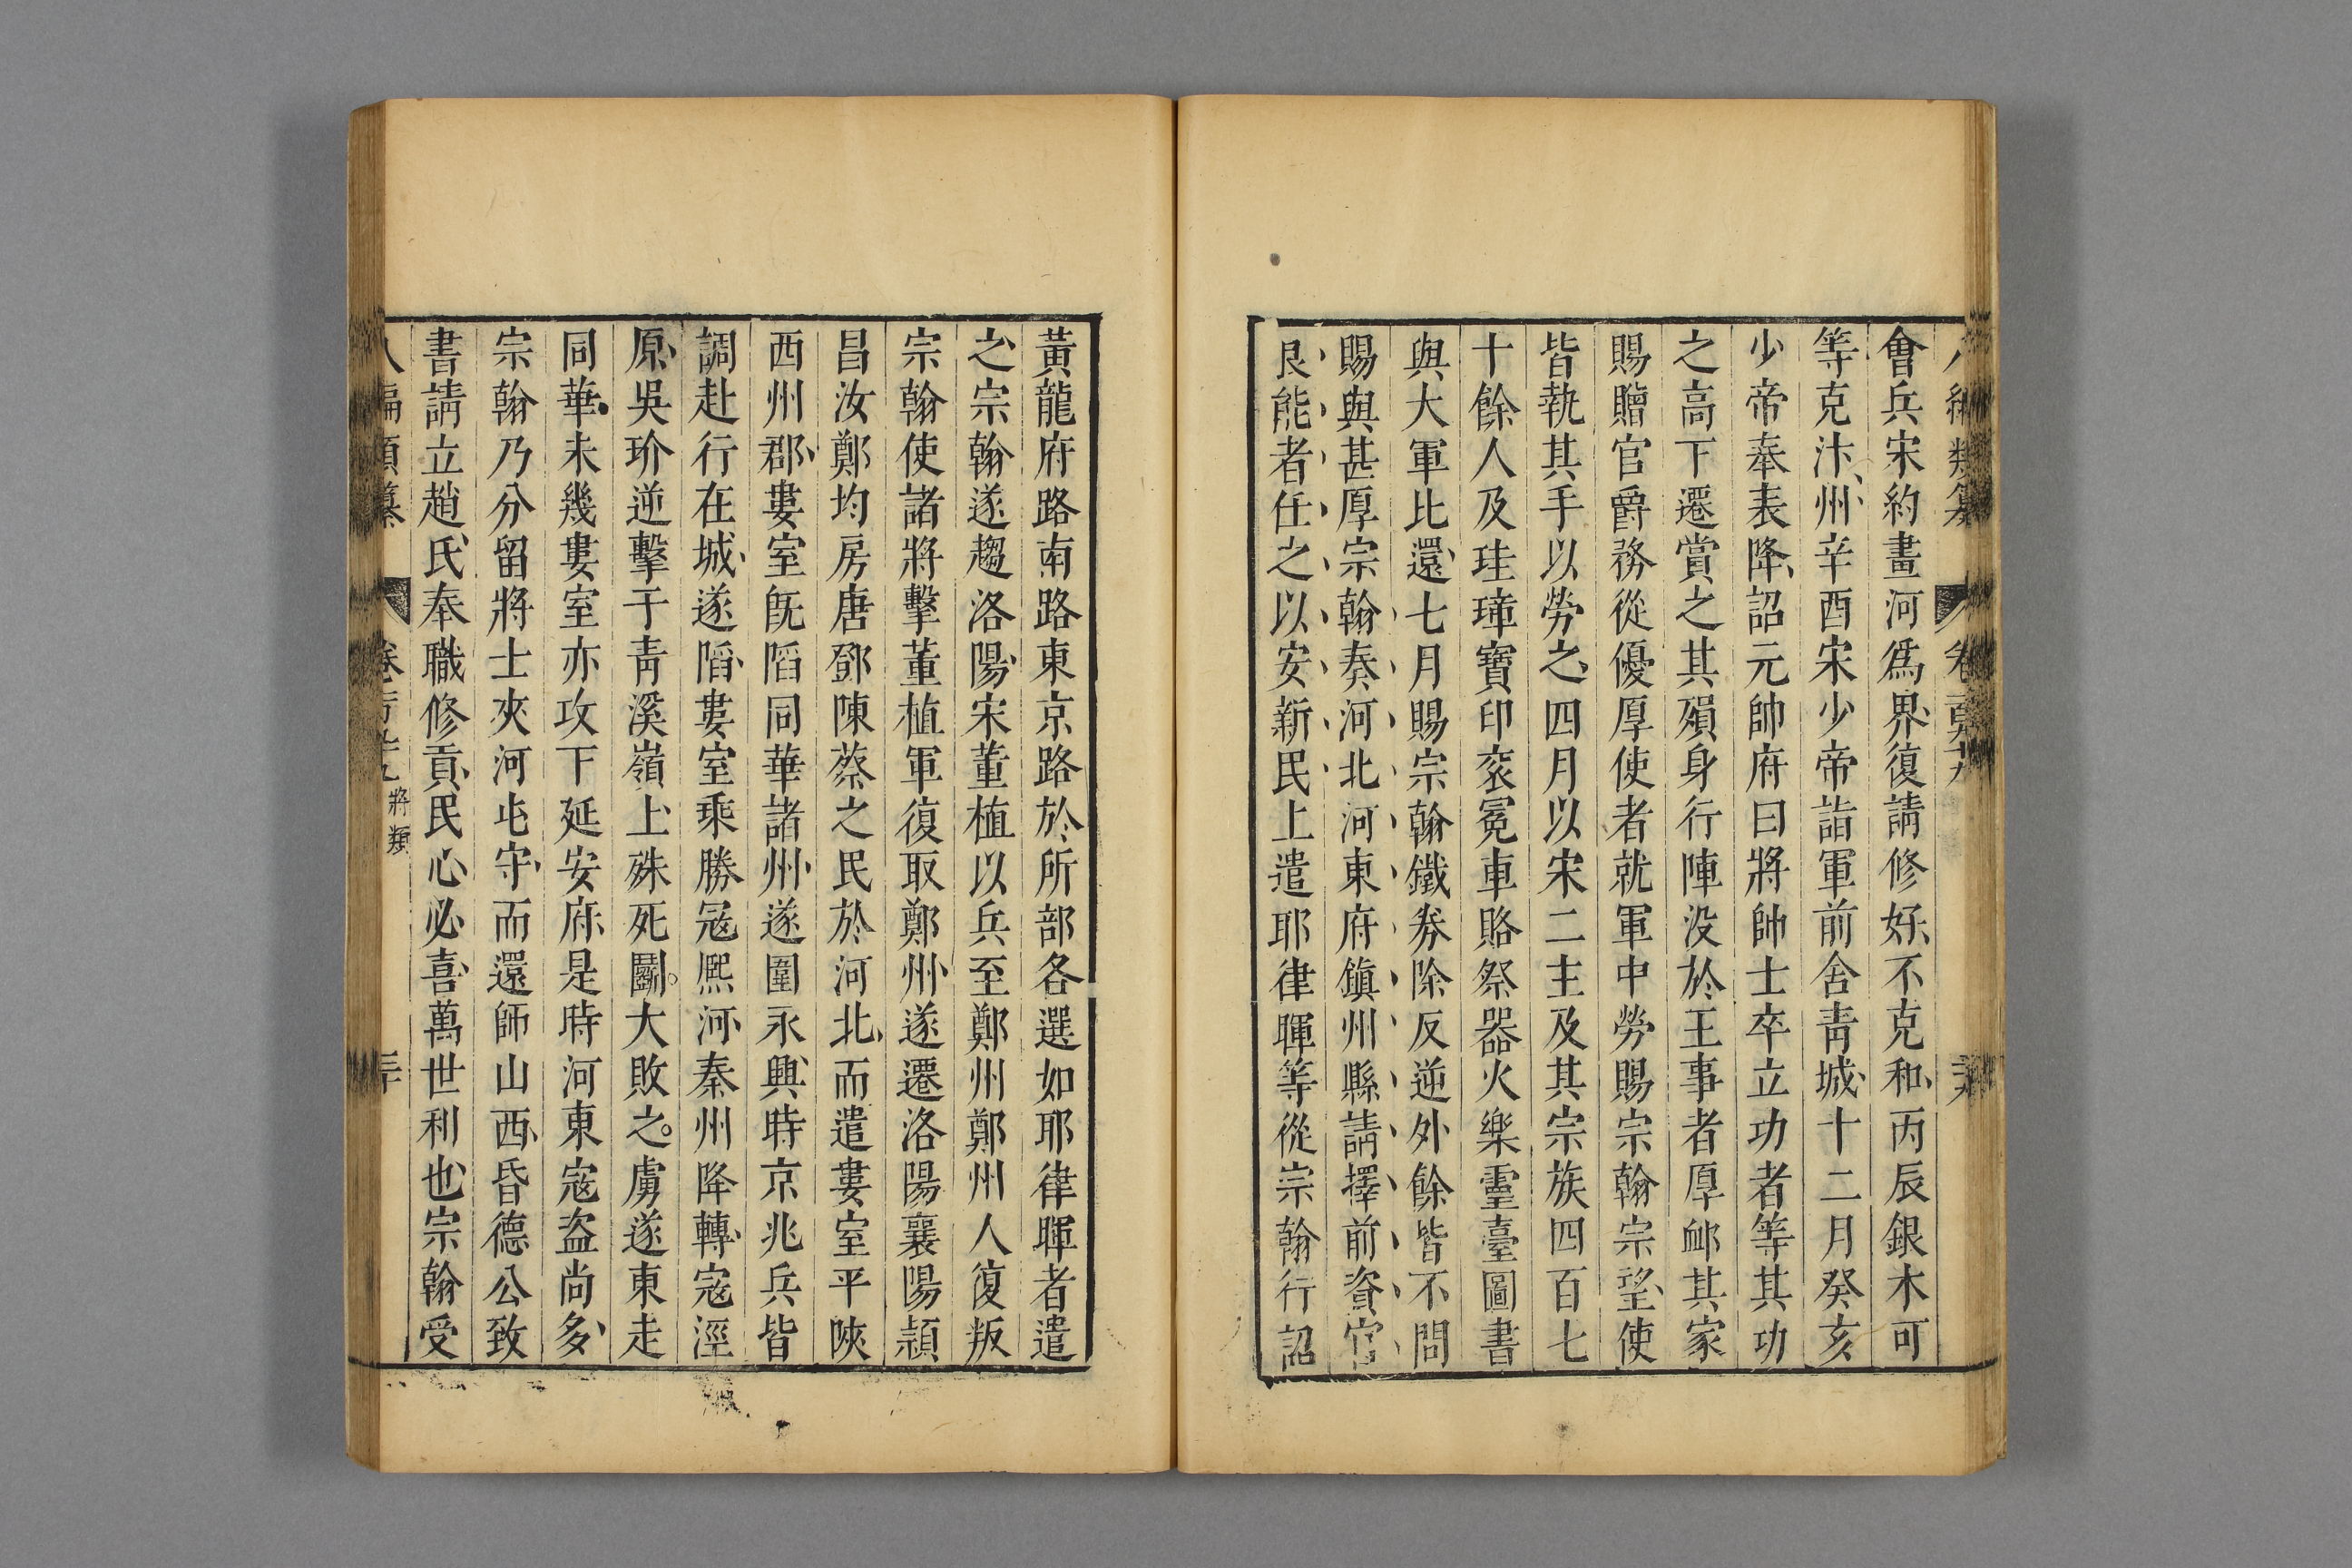 會兵宋約畫河爲界復請修好不克和丙辰銀木可
等克汴州辛酉宋少帝詣軍前舍靑城十二月癸亥
少帝奉表降詔元帥府曰將帥士卒立功者等其功
之高下遷賞之其殞身行陣没於王事者厚衈其家
賜贈官爵務從優厚使者就軍中勞賜宗翰宗望使
皆執其手以勞之四月以宋二主及其宗族四百七
十餘人及珪璋寶印衮冕車賂祭器火樂靈臺圖書
與大軍比還七月賜宗翰鐵券除反逆外餘皆不問
賜與甚厚宗翰奏河北河東府鎮州縣請擇前資官
良能者任之以安新民上遣耶律暉等從宗翰行詔
黃龍府路南路東京路於所部各選如耶律暉者遣
之宗翰遂趨洛陽宋董植以兵至鄭州鄭州人復叛
宗翰使諸將擊董植軍復取鄭州遂遷洛陽襄陽頴
昌汝鄭均房唐鄧陳蔡之民於河北而遣婁室平陝
西州郡婁室旣陷同華諸州遂圍永興時京兆兵皆
調赴行在城遂陷婁室乘勝冦熈河秦州降轉寇涇
原吳玠逆擊于靑溪嶺上殊死鬭大敗之虜遂東走
同華未幾婁室亦攻下延安府是時河東寇盗尚多
宗翰乃分留將士夾河屯守而還師山西昏德公致
書請立趙氏奉職修貢民心必喜萬世利也宗翰受
將類